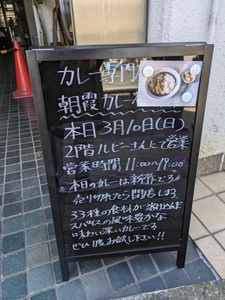 カレー専門
朝霞カレー
本日 3月10日(日)
2階ルビーさんにて営業
営業時間 11:00〜19:00
※本日のカレーは新作です
売り切れたら閉店します
33種の食材が溶け込んだ
スパイスの風味豊かな
味わい深いカレーです
ぜひ1度お試し下さい!!